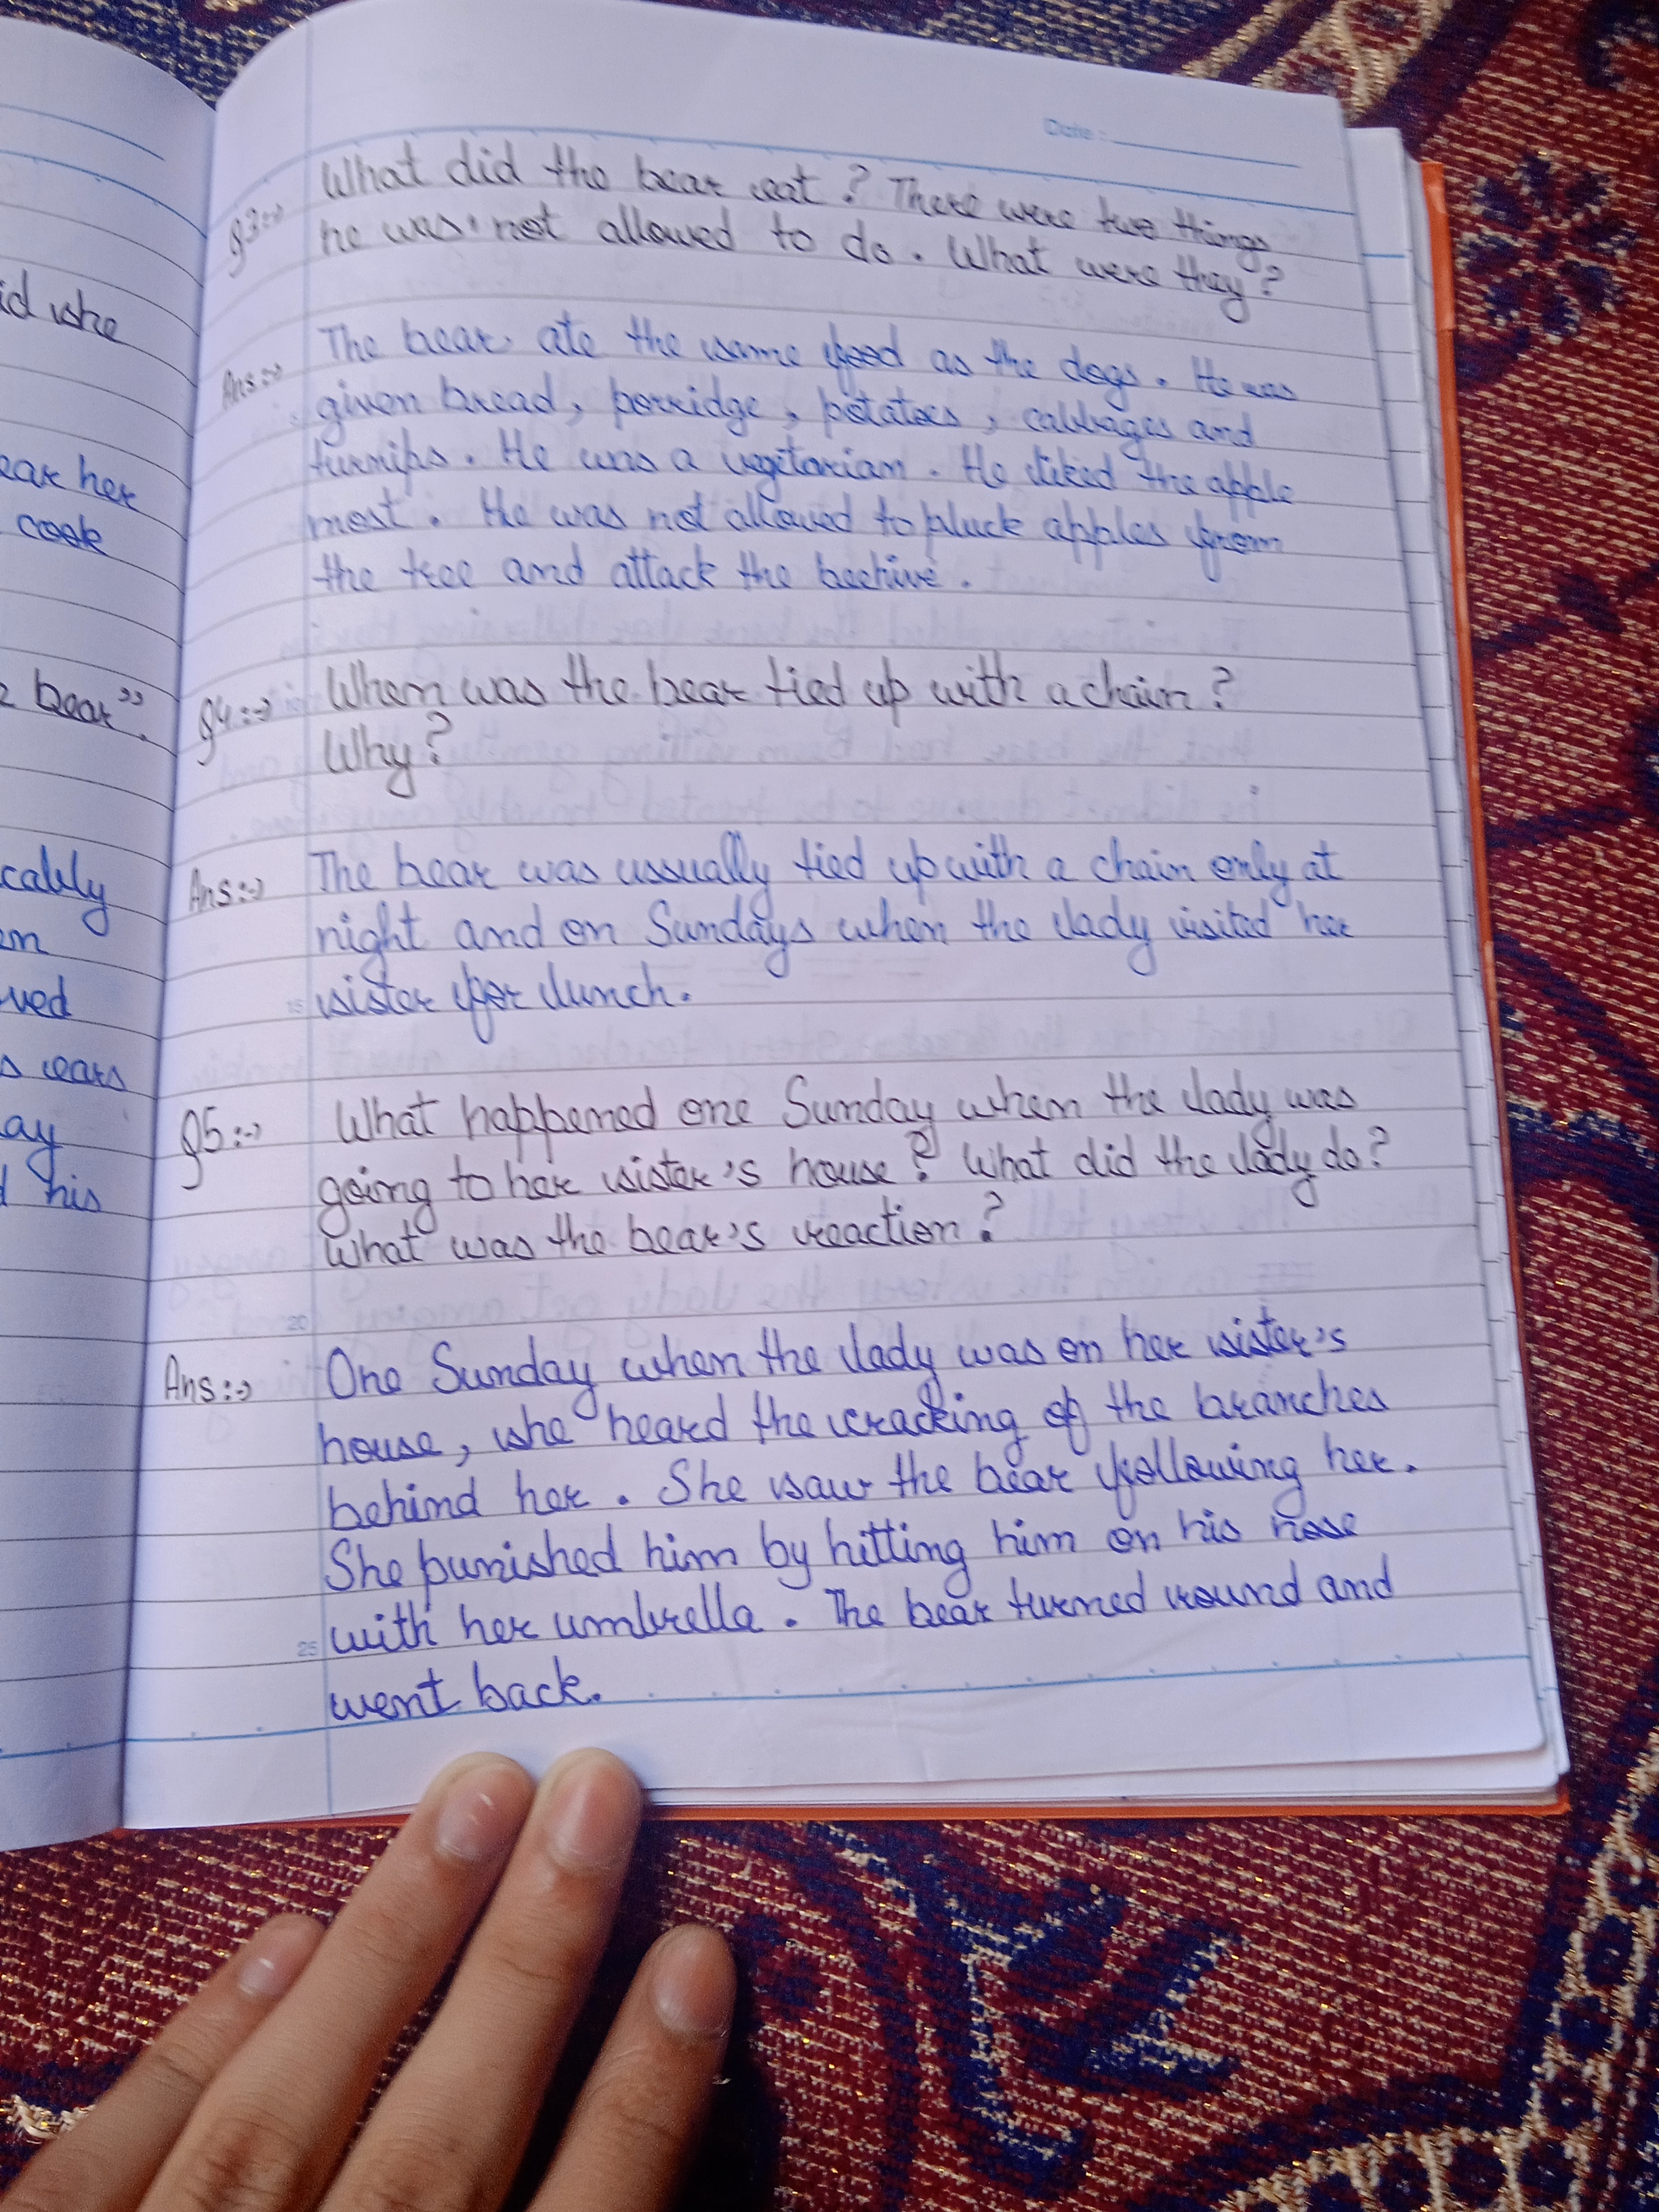 id she
ear her
cook
e bear”.
cably
en
ved
s ears
ay
d his
Date :
Q3:→ What did the bear eat ? There were two things
he was not allowed to do . What were they ?
Ans:→ The bear ate the same food as the dogs . He was
given bread , porridge , potatoes , cabbages and
turnips . He was a vegitarian . He liked the apple
most . He was not allowed to pluck apples from
the tree and attack the beehive .
Q4:→ When was the bear tied up with a chain ?
Why ?
Ans:→ The bear was ussually tied up with a chain only at
night and on Sundays when the lady visited her
15 sister for lunch .
Q5:→ What happened one Sunday when the lady was
going to her sister’s house ? What did the lady do ?
What was the bear’s reaction ?
20
Ans:→ One Sunday when the lady was on her sister’s
house , she heard the cracking of the branches
behind her . She saw the bear following her .
She punished him by hitting him on his nose
25 with her umbrella . The bear turned round and
went back .